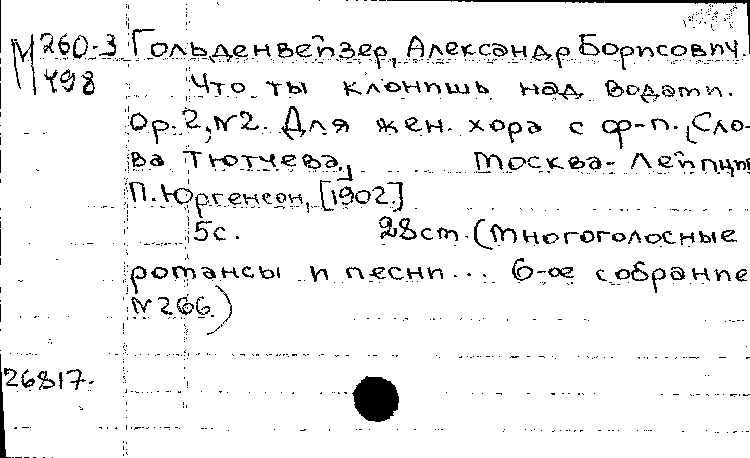 М 260-3 Гольденвейзер, Александр Борисович.
498 Что ты клонишь над водами.
Op. 2, №2. Для жен. хора с ф-п. [Сло-
ва Тютчева.] Москва-Лейпциг
П. Юргенсон, [1902]
5с. 28 см. (Многоголосные
романсы и песни... 6-ое собрание
№ 266.)
26817.